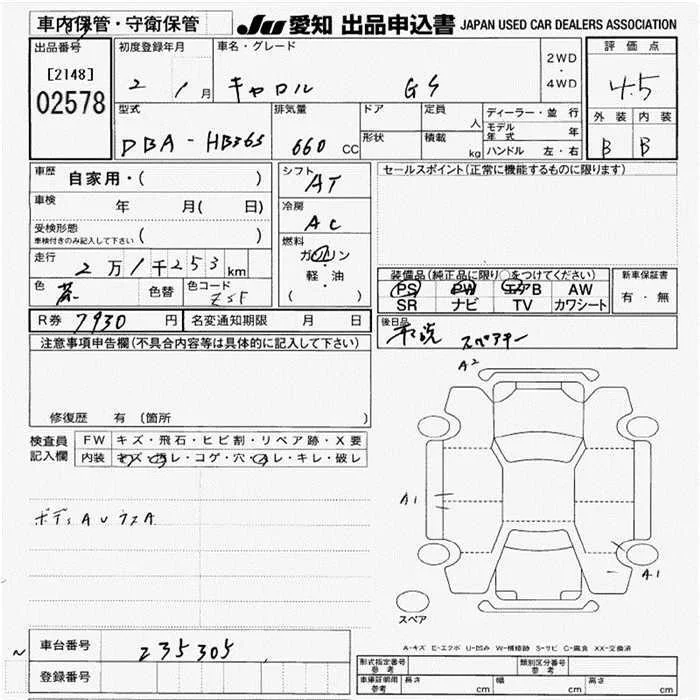 車内保管・守衛保管 JU 愛知 出品申込書 JAPAN USED CAR DEALERS ASSOCIATION
出品番号 初度登録年月 車名・グレード 2WD ・ 4WD 評価点
[2148] 02578 2 1月 キャロル GS 4.5
型式 排気量 ドア 定員 人 ディーラー・並行 外装 内装
DBA-HB36S 660 CC 形状 積載 kg モデル年式 年 B B
ハンドル 左・右
車歴 自家用・( ) シフト AT セールスポイント(正常に機能するものに限ります)
車検 年 月( 日) 冷房 AC
受検形態 車検付きのみ記入して下さい ( )
走行 2万1千253km 燃料 ガソリン
軽・油
( )
装備品(純正品に限り○をつけてください) 新車保証書
色 色替 色コード PS PW エアB AW 有・無
SR ナビ TV カワシート
R券 7930円 名変通知期限 月 日 後日品
スペアキー
注意事項申告欄(不具合内容等は具体的に記入して下さい)
A2
修復歴 有 (箇所
検査員記入欄 FW キズ・飛石・ヒビ割・リペア跡・X要
内装 キズ・汚レ・コゲ・穴・スレ・キレ・破レ
A1
ボディAUラスA
A1
スペア
A-キズ E-エクボ U-凹み W-補修跡 S-サビ C-腐食 XX-交換済
~ 車台番号 235305
形式指定番号 参考 類別区分番号 参考
登録番号 車庫証明用 参考 長さ cm 幅 cm 高さ cm